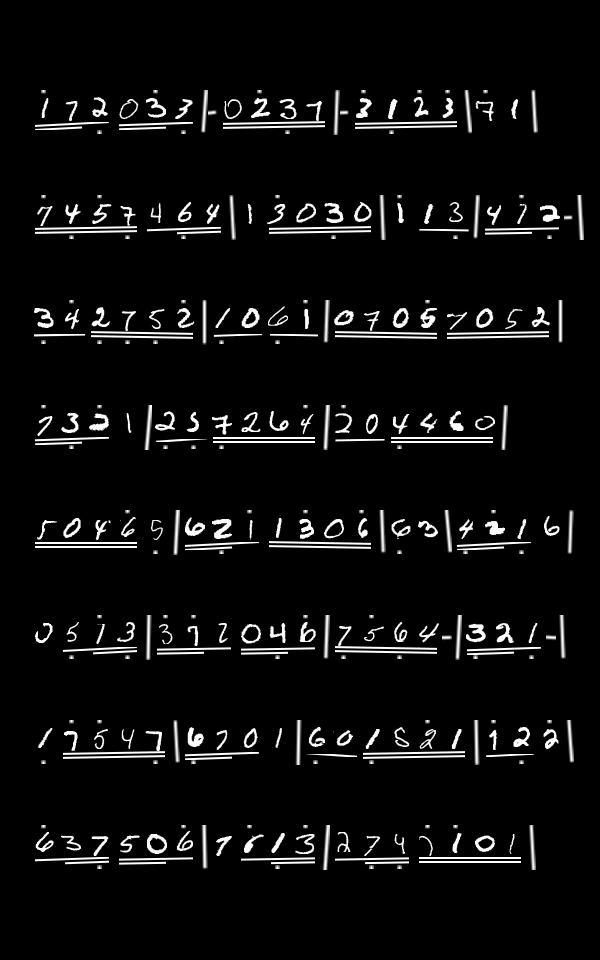 172033|-0237|-3123|71|
7457464|13030|113|472-|
342752|1061|07057052|
7321|257264|204460|
50465|6211306|63|4216|
0573|372046|7564-|321-|
17547|6701|601821|122|
637506|7813|2747101|